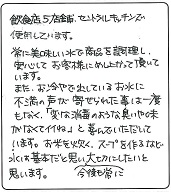 飲食店5店舗、セントラルキッチンで
使用しています。
常に美味しい水で商品を調理し、
安心してお客様にめし上がって頂いて
います。
また、お冷やで出しているお水に
不満の声が寄せられた事は一度
もなく、「変な消毒のような臭いや味
がなくてイイね」と喜んでいただいて
います。お米を炊く、スープを作るなど
水は基本だと思い大切にしたいと
思います。今後も常に